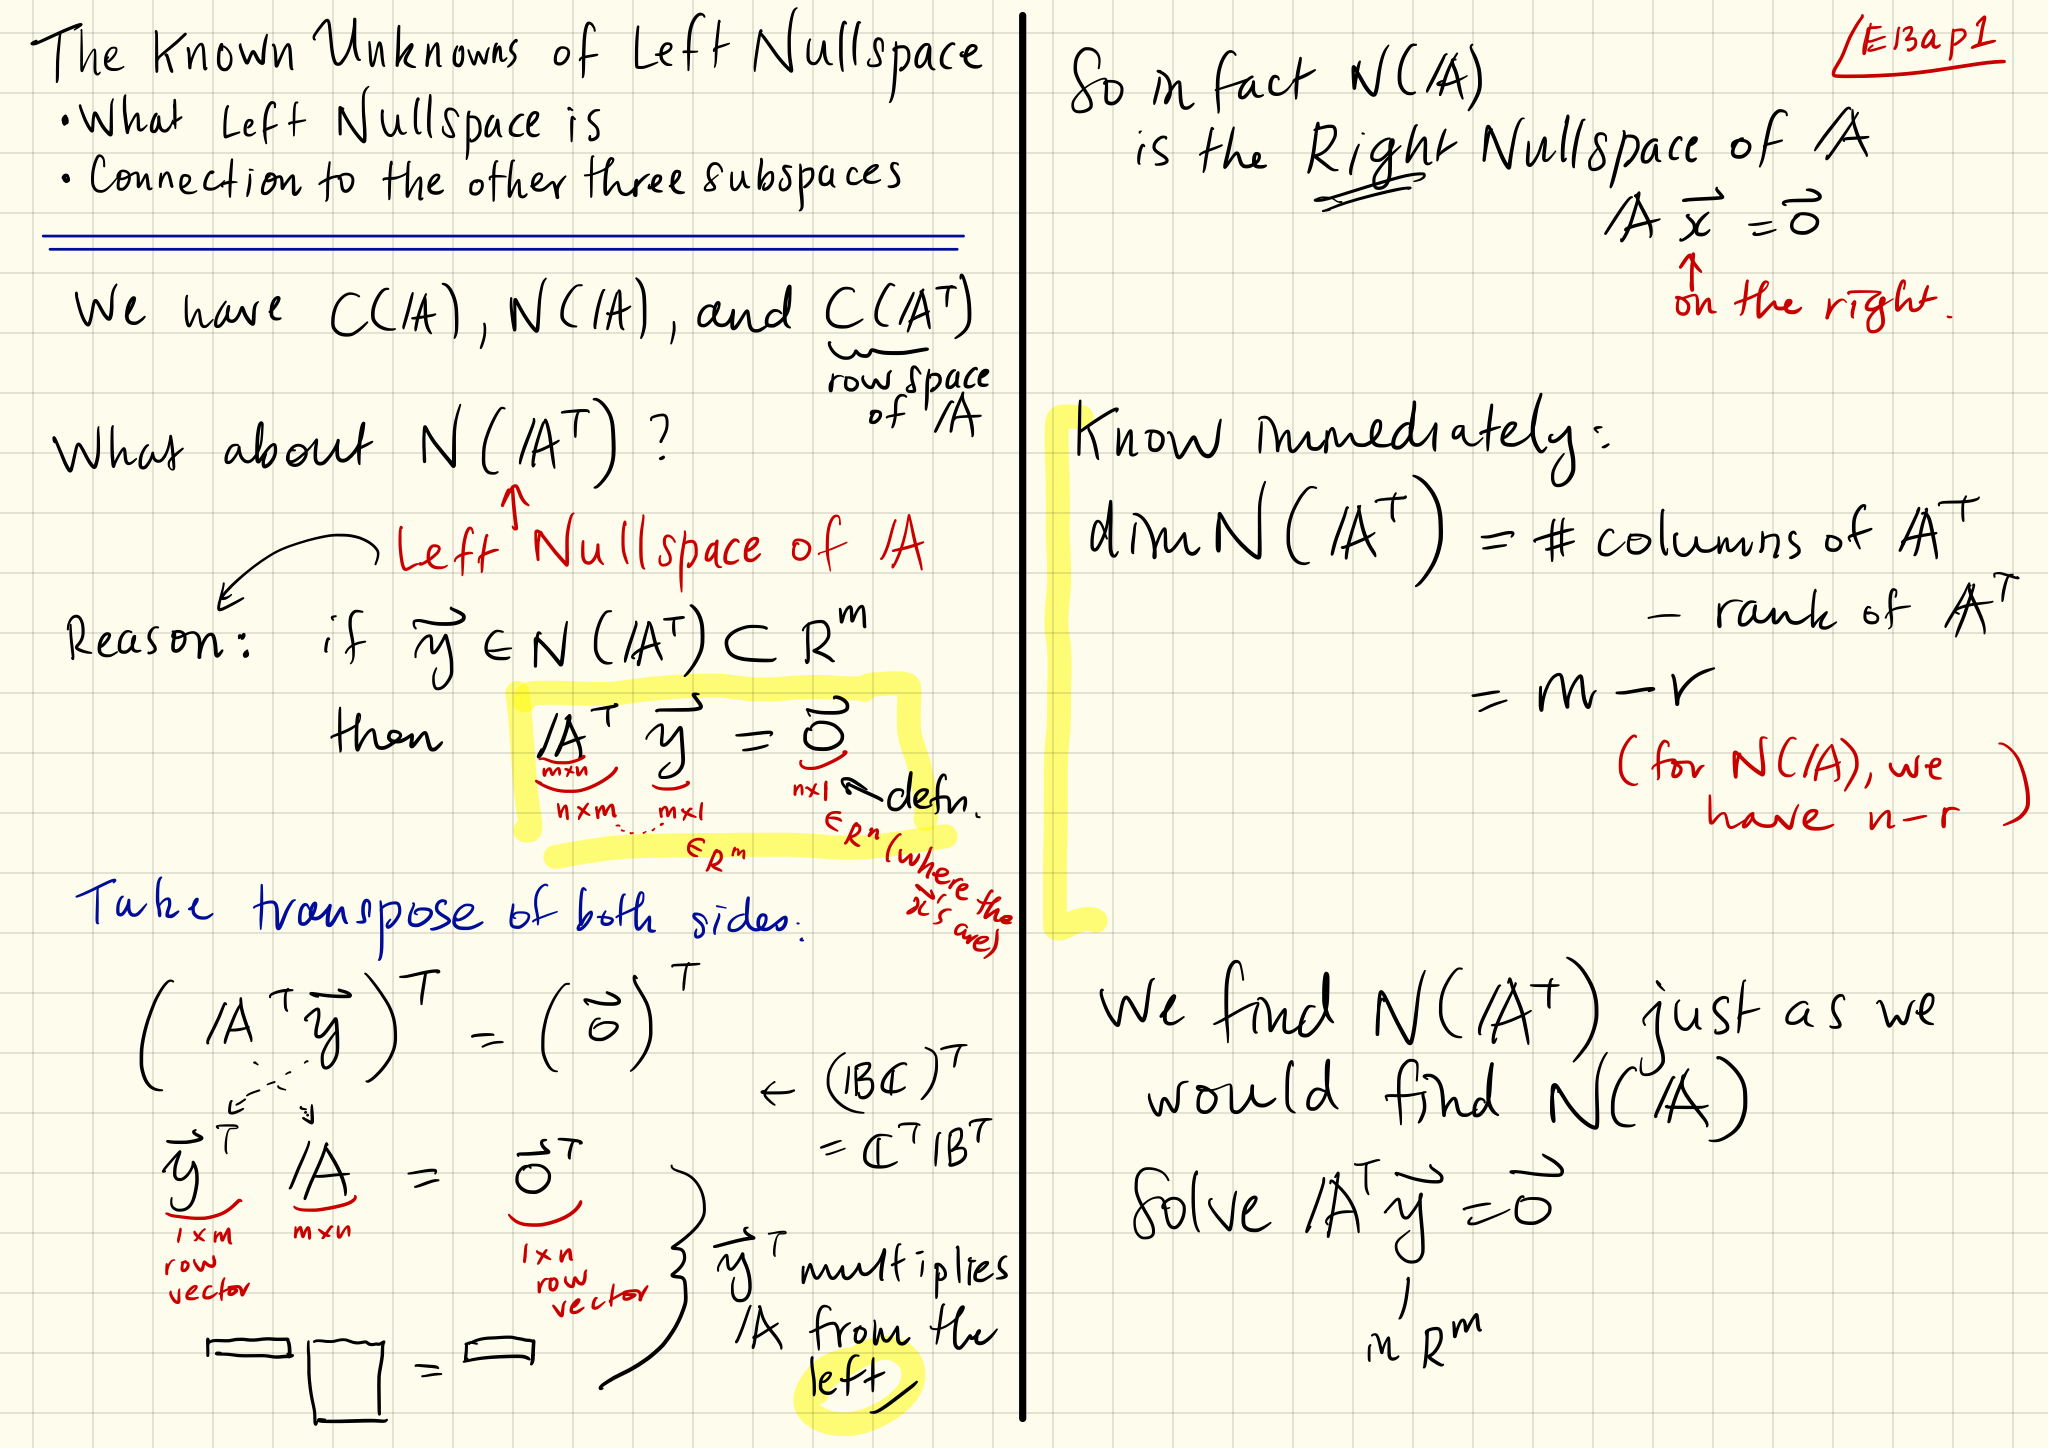 The Known Unknowns of Left Nullspace
• What Left Nullspace is
• Connection to the other three subspaces
We have C(A), N(A), and C(Aᵀ)
row space
of A
What about N(Aᵀ)?
↑
Left Nullspace of A
Reason: if y⃗ ∈ N(Aᵀ) ⊂ Rᵐ
then Aᵀ y⃗ = 0⃗
m×n
n×m m×1 n×1 ← defn.
∈ Rᵐ ∈ Rⁿ (where the
x⃗'s are)
Take transpose of both sides:
(Aᵀ y⃗)ᵀ = (0⃗)ᵀ
← (BC)ᵀ
= CᵀBᵀ
y⃗ᵀ A = 0⃗ᵀ
1×m m×n 1×n
row row
vector vector
y⃗ᵀ multiplies
A from the
left
=
E13ap1
So in fact N(A)
is the Right Nullspace of A
A x⃗ = 0⃗
↑
on the right.
Know immediately:
dim N(Aᵀ) = # columns of Aᵀ
– rank of Aᵀ
= m – r
(for N(A), we
have n–r)
We find N(Aᵀ) just as we
would find N(A)
Solve Aᵀ y⃗ = 0⃗
in Rᵐ